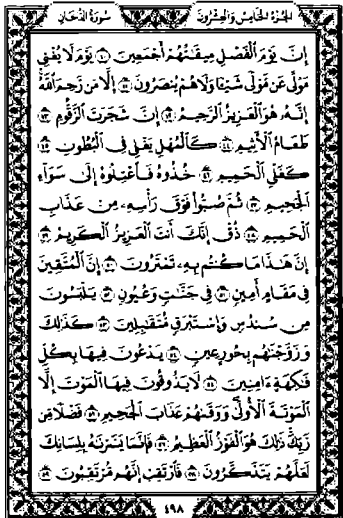 الجزء الخامس والعشرون سورة الدخان
إِنَّ يَوْمَ ٱلْفَصْلِ مِيقَٰتُهُمْ أَجْمَعِينَ ٤٠ يَوْمَ لَا يُغْنِى
مَوْلًى عَن مَّوْلًى شَيْـًٔا وَلَا هُمْ يُنصَرُونَ ٤١ إِلَّا مَن رَّحِمَ ٱللَّهُ
إِنَّهُۥ هُوَ ٱلْعَزِيزُ ٱلرَّحِيمُ ٤٢ إِنَّ شَجَرَتَ ٱلزَّقُّومِ ٤٣
طَعَامُ ٱلْأَثِيمِ ٤٤ كَٱلْمُهْلِ يَغْلِى فِى ٱلْبُطُونِ ٤٥
كَغَلْىِ ٱلْحَمِيمِ ٤٦ خُذُوهُ فَٱعْتِلُوهُ إِلَىٰ سَوَآءِ
ٱلْجَحِيمِ ٤٧ ثُمَّ صُبُّوا۟ فَوْقَ رَأْسِهِۦ مِنْ عَذَابِ
ٱلْحَمِيمِ ٤٨ ذُقْ إِنَّكَ أَنتَ ٱلْعَزِيزُ ٱلْكَرِيمُ ٤٩
إِنَّ هَٰذَا مَا كُنتُم بِهِۦ تَمْتَرُونَ ٥٠ إِنَّ ٱلْمُتَّقِينَ
فِى مَقَامٍ أَمِينٍ ٥١ فِى جَنَّٰتٍ وَعُيُونٍ ٥٢ يَلْبَسُونَ
مِن سُندُسٍ وَإِسْتَبْرَقٍ مُّتَقَٰبِلِينَ ٥٣ كَذَٰلِكَ
وَزَوَّجْنَٰهُم بِحُورٍ عِينٍ ٥٤ يَدْعُونَ فِيهَا بِكُلِّ
فَٰكِهَةٍ ءَامِنِينَ ٥٥ لَا يَذُوقُونَ فِيهَا ٱلْمَوْتَ إِلَّا
ٱلْمَوْتَةَ ٱلْأُولَىٰ وَوَقَىٰهُمْ عَذَابَ ٱلْجَحِيمِ ٥٦ فَضْلًا مِّن
رَّبِّكَ ذَٰلِكَ هُوَ ٱلْفَوْزُ ٱلْعَظِيمُ ٥٧ فَإِنَّمَا يَسَّرْنَٰهُ بِلِسَانِكَ
لَعَلَّهُمْ يَتَذَكَّرُونَ ٥٨ فَٱرْتَقِبْ إِنَّهُم مُّرْتَقِبُونَ ٥٩
٤٩٨